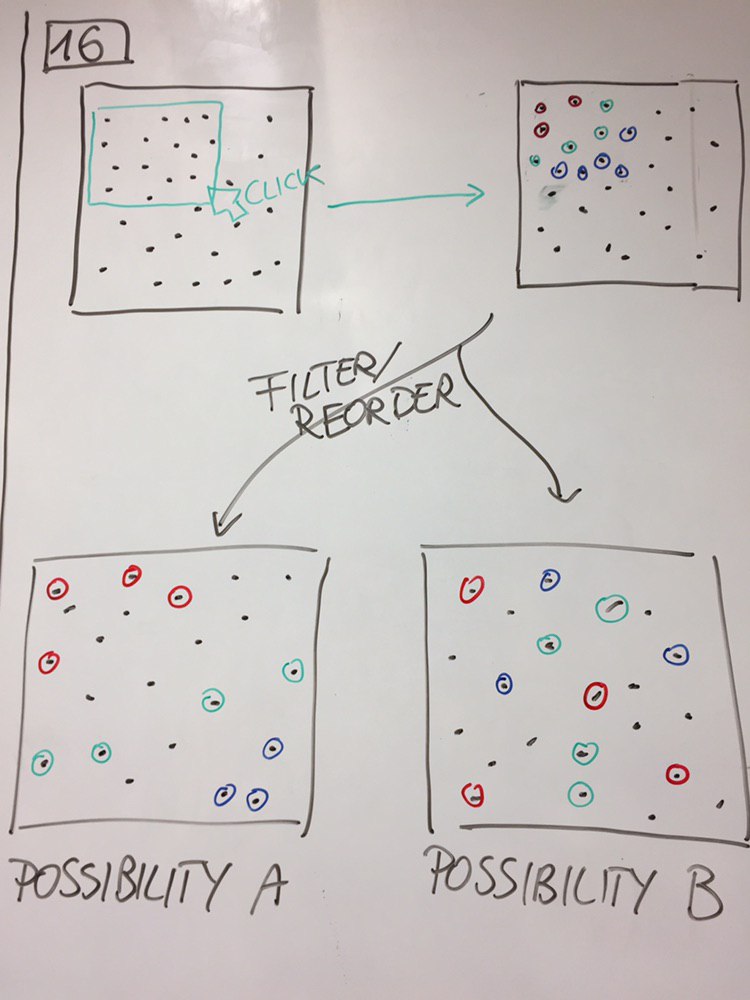 16
CLICK
FILTER/
REORDER
POSSIBILITY A
POSSIBILITY B